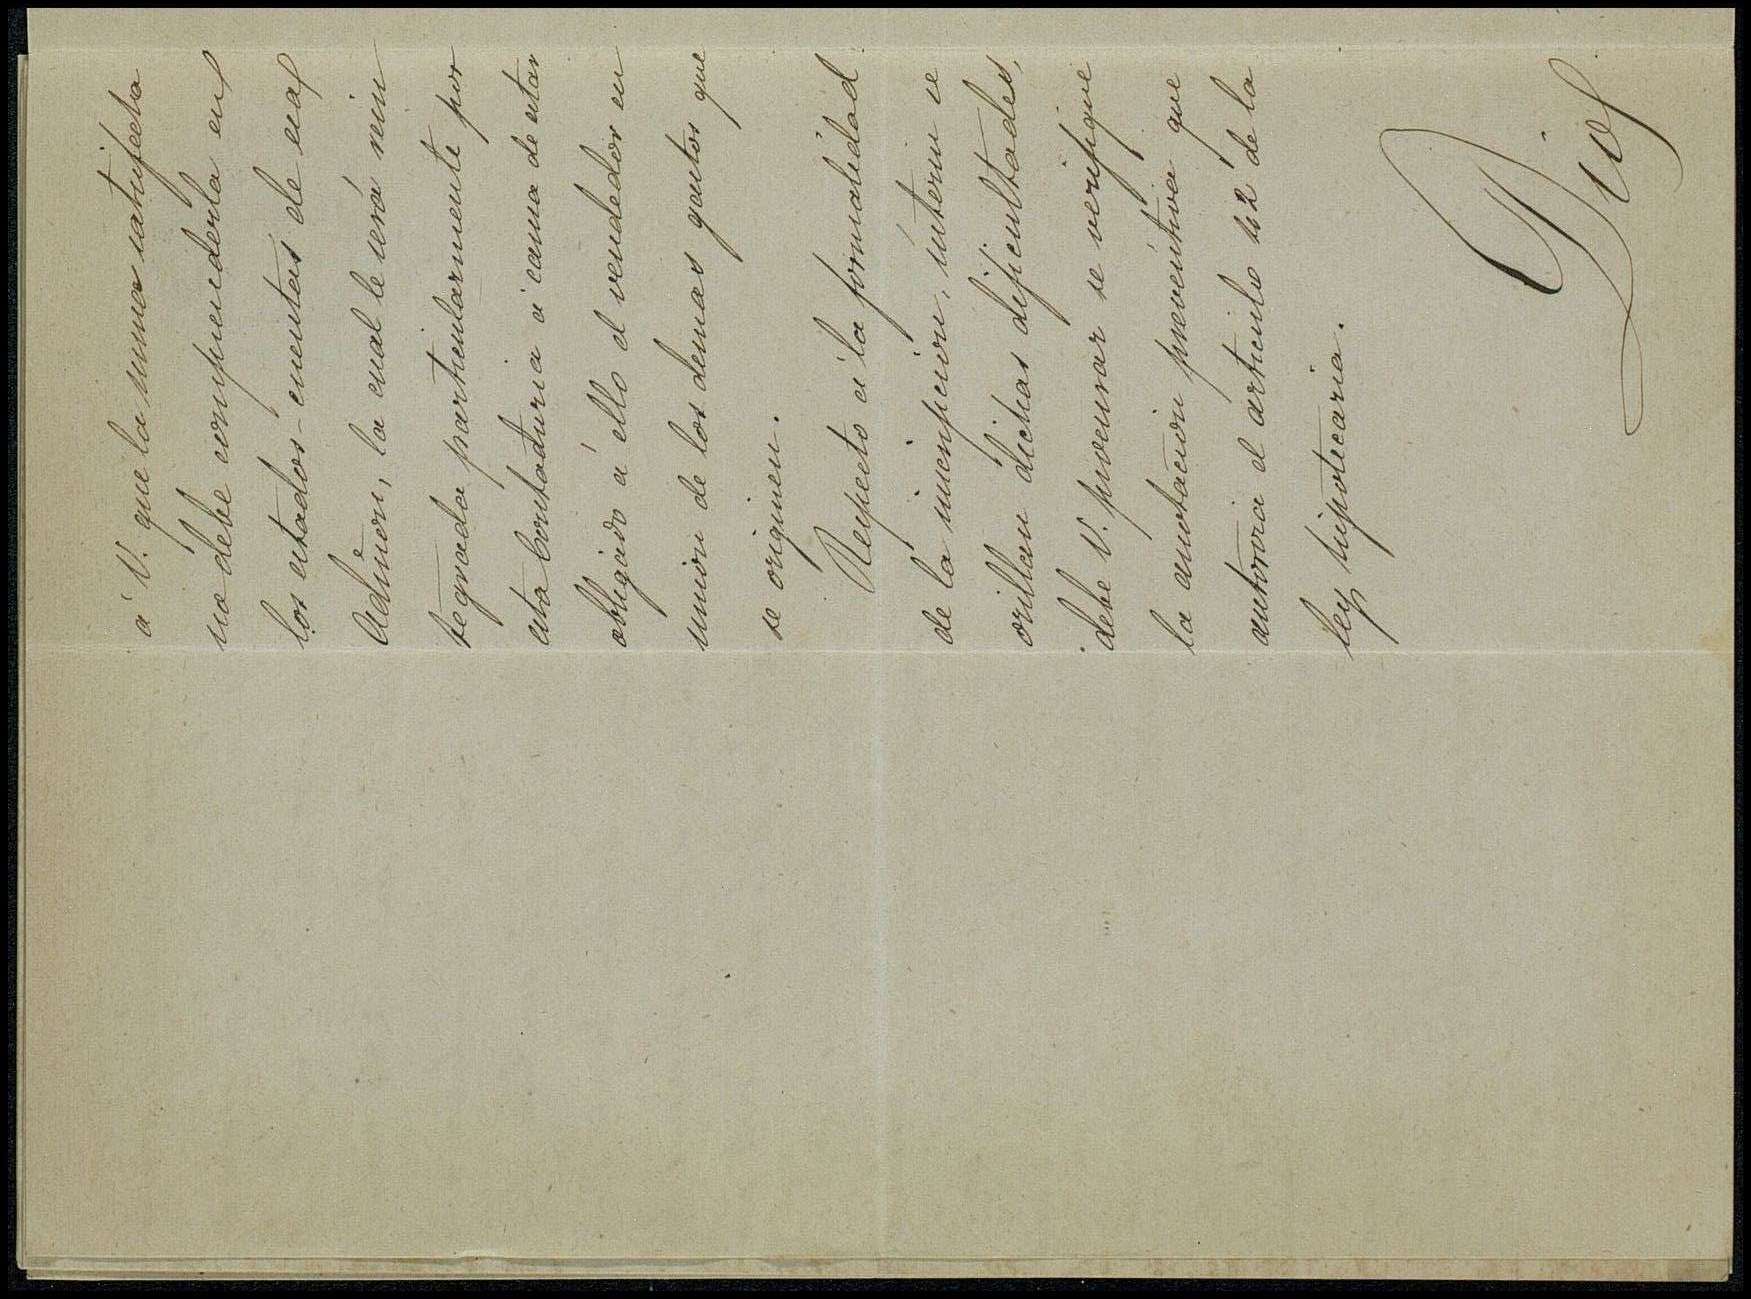 á V. que la suma satisfecha
no debe comprenderla en
los estados-cuentas de esa
Admon, la cual le será rein
tegrada particularmente por
esta Contaduria á causa de estar
obligado á ello el vendedor en
union de los demas gastos que
se originen.
Respecto á la formalidad
de la inscripcion, interin se
orillan dichas dificultades,
debe V. procurar se verifique
la anotacion preventiva que
autoriza el artículo 42 de la
ley hipotecaria.
Dios